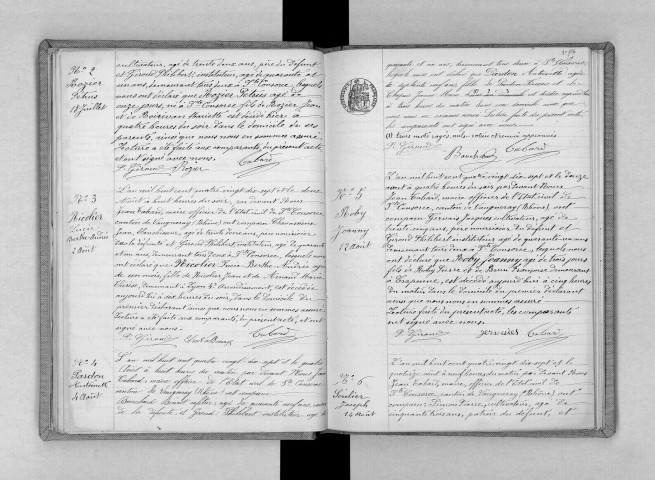 N° 2
Rozier
Petrus
18 Juillet
cultivateur, âgé de trente deux ans, père du défunt
et Giroud Philibert, instituteur, âgé de quarante et
un ans, demeurant tous deux à Ste Consorce, lesquels
nous ont déclaré que Rozier Petrus âgé de
onze jours, né à Ste Consorce fils de Rozier Jean
et de Mariette est décédé hier à
quatre heures du soir dans le domicile de ses
parents, ainsi que nous nous en sommes assuré
Lecture a été faite aux comparants, du présent acte
et ont signé avec nous.
P. Giroud Rozier Cabard
N° 3
Nicolier
Lucie
Berthe Andrée
2 Août
L'an mil huit cent quatre vingt dix sept et le deux
Août à huit heures du soir, par devant Nous
Jean Cabard, maire officier de l'Etat civil de Ste Consorce
canton de Vaugneray (Rhône) ont comparu
Jean, âgé de trente deux ans, père nourricier
de la défunte et Giroud Philibert, instituteur, âgé de quarante
et un ans, demeurant tous deux à Ste Consorce, lesquels nous
ont déclaré que Nicolier Lucie Berthe Andrée âgée
de mois, fille de Nicolier Jean et de Marie
demeurant à Lyon arrondissement, est décédée
aujourd'hui à six heures du soir, dans le domicile du
premier déclarant ainsi que nous nous en sommes assuré
Lecture a été faite aux comparants, du présent acte, et ont
signé avec nous.
P. Giroud Cabard
N° 4
Pardon
Antoinette
4 Août
L'an mil huit cent quatre vingt dix sept et le quatre
Août à huit heures du matin par devant Nous Jean
Cabard, maire officier de l'Etat civil de Ste Consorce
canton de Vaugneray (Rhône) ont comparu
âgé de quarante neuf ans,
de la défunte et Giroud Philibert instituteur âgé de
quarante et un ans, demeurant tous deux à Ste Consorce
lesquels nous ont déclaré que Pardon Antoinette âgée
de
à trois heures du matin dans son domicile ainsi que
nous nous en sommes assuré Lecture faite du présent acte,
les comparants ont signé avec nous
P. Giroud Cabard
N° 5
Roby
Joanny
12 Août
L'an mil huit cent quatre vingt dix sept et le douze
août à quatre heures du soir par devant Nous
Jean Cabard, maire officier de l'Etat civil de
Ste Consorce, canton de Vaugneray (Rhône) ont
comparu Gervais Jacques cultivateur, âgé de
trente cinq ans, père nourricier, du défunt et
Giroud Philibert instituteur âgé de quarante un ans
demeurant tous deux à Ste Consorce, lesquels nous
ont déclaré que Roby Joanny âgé de trois jours
fils de Roby Pierre et de Françoise demeurant
à Craponne, est décédé aujourd'hui à cinq heures
du matin, dans le domicile du premier déclarant
ainsi que nous nous en sommes assuré
Lecture faite du présent acte, les comparants
ont signé avec nous.
P. Giroud gervais Cabard
N° 6
Joseph
14 Août
L'an mil huit cent quatre vingt dix sept et le
quatorze août à neuf heures du matin, par devant Nous
Jean Cabard, maire officier de l'Etat civil de
Ste Consorce, canton de Vaugneray (Rhône) ont
comparu Pierre, cultivateur, âgé de
cinquante trois ans, du défunt, et